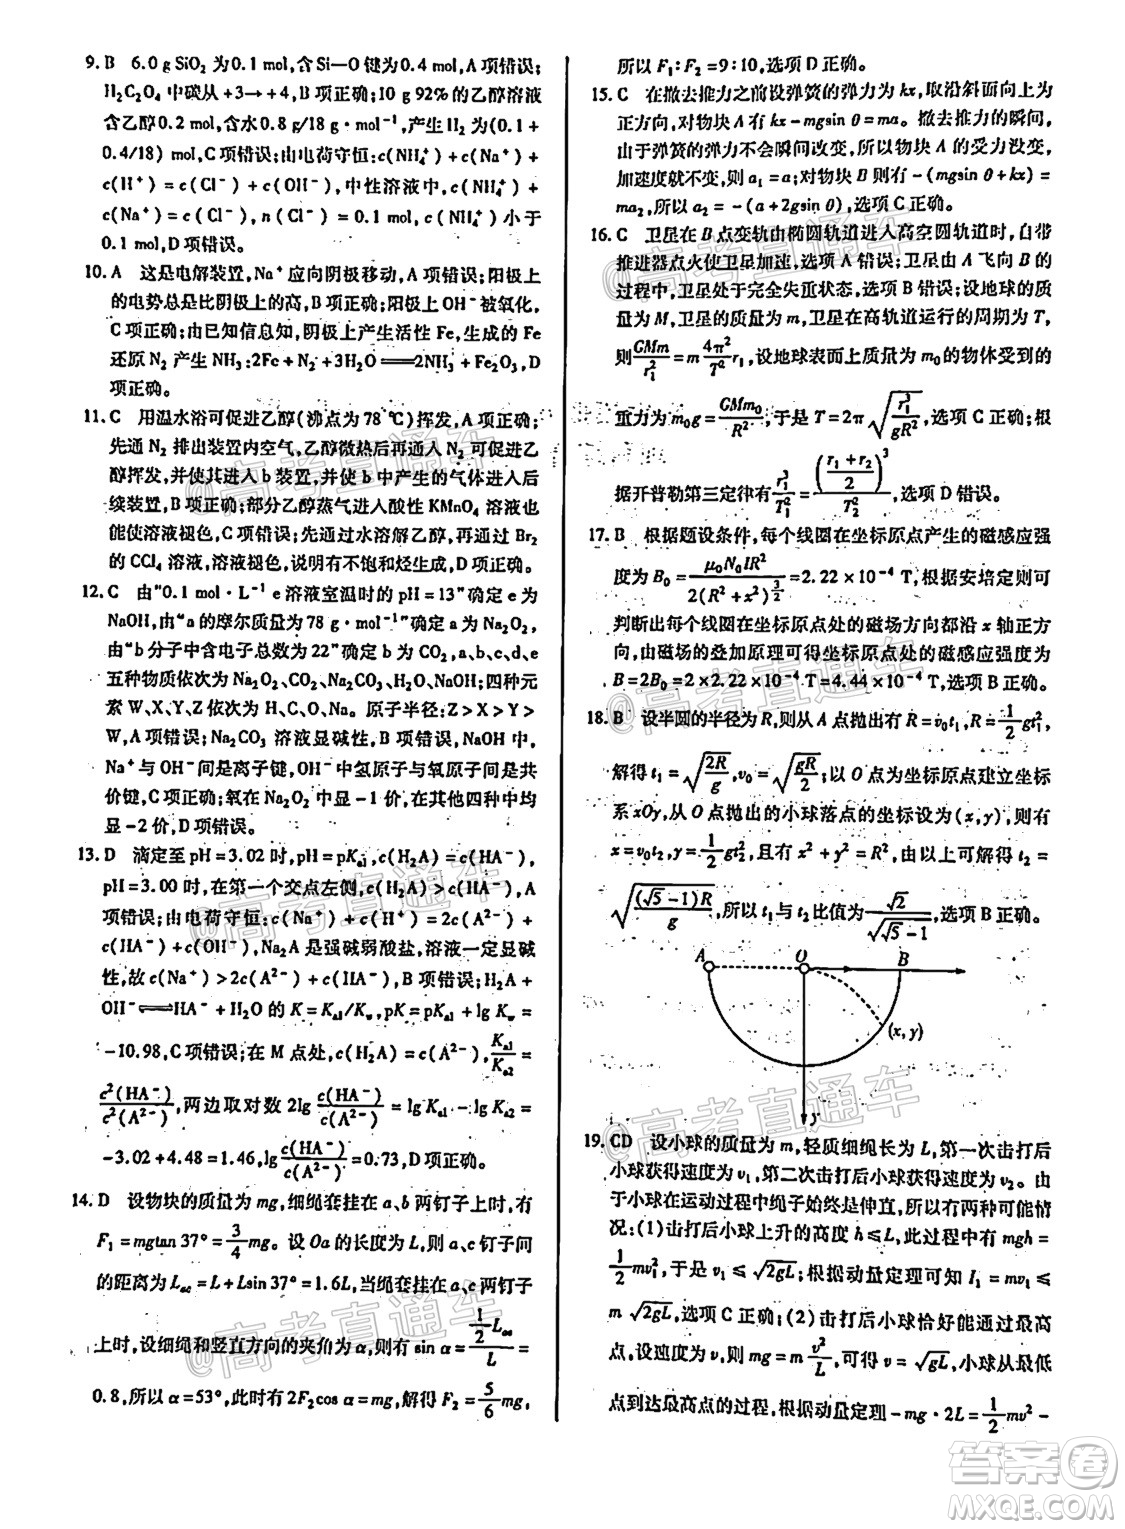 9. B　6.0 g SiO₂ 为 0.1 mol,含 Si—O 键为 0.4 mol,A 项错误;
H₂C₂O₄ 中碳从 +3→+4,B 项正确;10 g 92%的乙醇溶液
含乙醇 0.2 mol,含水 0.8 g/18 g·mol⁻¹,产生 H₂ 为(0.1+
0.4/18) mol,C 项错误;由电荷守恒:c(NH₄⁺)+c(Na⁺)+
c(H⁺)=c(Cl⁻)+c(OH⁻),中性溶液中,c(NH₄⁺)+
c(Na⁺)=c(Cl⁻),n(Cl⁻)=0.1 mol,c(NH₄⁺)小于
0.1 mol,D 项错误。
10. A　这是电解装置,Na⁺ 应向阴极移动,A 项错误;阳极上
的电势总是比阴极上的高,B 项正确;阳极上 OH⁻ 被氧化,
C 项正确;由已知信息知,阴极上产生活性 Fe,生成的 Fe
还原 N₂ 产生 NH₃:2Fe+N₂+3H₂O══2NH₃+Fe₂O₃,D
项正确。
11. C　用温水浴可促进乙醇(沸点为 78 ℃)挥发,A 项正确;
先通 N₂ 排出装置内空气,乙醇微热后再通入 N₂ 可促进乙
醇挥发,并使其进入 b 装置,并使 b 中产生的气体进入后
续装置,B 项正确;部分乙醇蒸气进入酸性 KMnO₄ 溶液也
能使溶液褪色,C 项错误;实验先通过水溶解乙醇,再通过 Br₂
的 CCl₄ 溶液,溶液褪色,说明有不饱和烃生成,D 项正确。
12. C　由“0.1 mol·L⁻¹ e 溶液室温时的 pH=13”确定 e 为
NaOH,由“a 的摩尔质量为 78 g·mol⁻¹”确定 a 为 Na₂O₂,
由“b 分子中含电子总数为 22”确定 b 为 CO₂,a、b、c、d、e
五种物质依次为 Na₂O₂、CO₂、Na₂CO₃、O₂、NaOH;四种元
素 W、X、Y、Z 依次为 H、C、O、Na。原子半径:Z>X>Y>
W,A 项错误;Na₂CO₃ 溶液显碱性,B 项错误;NaOH 中,
Na⁺ 与 OH⁻ 间是离子键,OH⁻ 中氢原子与氧原子间是共
价键,C 项正确;氧在 Na₂O₂ 中显 −1 价,在其他四种中均
显 −2 价,D 项错误。
13. D　滴定至 pH=3.02 时,pH=pKₐ₁,c(H₂A)=c(HA⁻),
pH=3.00 时,在第一个交点左侧,c(H₂A)>c(HA⁻),A
项错误;由电荷守恒:c(Na⁺)+c(H⁺)=2c(A²⁻)+
c(HA⁻)+c(OH⁻),Na₂A 是强碱弱酸盐,溶液一定显碱
性,故 c(Na⁺)>2c(A²⁻)+c(HA⁻),B 项错误;A²⁻+
OH⁻⇌HA⁻+H₂O 的 K=Kₐ₁/K_w,pK=pKₐ₁+lg K_w=
−10.98,C 项错误;在 M 点处,c(H₂A)=c(A²⁻),Kₐ₁/Kₐ₂=
c²(HA⁻)/c²(A²⁻),两边取对数 2lg c(HA⁻)/c(A²⁻)=lg Kₐ₁−lg Kₐ₂=
−3.02+4.48=1.46,lg c(HA⁻)/c(A²⁻)=0.73,D 项正确。
14. D　设物块的质量为 mg,细绳套挂在 a、b 两钉子上时,有
F₁=mgtan 37°=3/4 mg。设 Oa 的长度为 L,则 a、c 钉子间
的距离为 L_ac=L+Lsin 37°=1.6L,当绳套挂在 a、c 两钉子
上时,设细绳和竖直方向的夹角为 α,则有 sin α=(1/2 L_ac)/L=
0.8,所以 α=53°,此时有 2F₂cos α=mg,解得 F₂=5/6 mg,
所以 F₁:F₂=9:10,选项 D 正确。
15. C　在撤去推力之前设弹簧的弹力为 kx,取沿斜面向上为
正方向,对物块 A 有 kx−mgsin θ=ma。撤去推力的瞬间,
由于弹簧的弹力不会瞬间改变,所以物块 A 的受力没变,
加速度就不变,则 a₁=a;对物块 B 有 −(mgsin θ+kx)=
ma₂,所以 a₂=−(a+2gsin θ),选项 C 正确。
16. C　卫星在 B 点变轨由椭圆轨道进入高空圆轨道时,自带
推进器点火使卫星加速,选项 A 错误;卫星由 A 飞向 B 的
过程中,卫星处于完全失重状态,选项 B 错误;设地球的质
量为 M,卫星的质量为 m,卫星在高轨道运行的周期为 T,
则 GMm/r₁²=m 4π²/T² r₁,设地球表面上质量为 m₀ 的物体受到的
重力为 m₀g=GMm₀/R²,于是 T=2π√(r₁³/gR²),选项 C 正确;根
据开普勒第三定律有 r₁³/T₁²=((r₁+r₂)/2)³/T₂²,选项 D 错误。
17. B　根据题设条件,每个线圈在坐标原点产生的磁感应强
度为 B₀=μ₀N₀IR²/2(R²+x²)^(3/2)=2.22×10⁻⁴ T,根据安培定则可
判断出每个线圈在坐标原点处的磁场方向都沿 x 轴正方
向,由磁场的叠加原理可得坐标原点处的磁感应强度为
B=2B₀=2×2.22×10⁻⁴ T=4.44×10⁻⁴ T,选项 B 正确。
18. B　设半圆的半径为 R,则从 A 点抛出有 R=v₀t₁,R=1/2 gt₁²,
解得 t₁=√(2R/g),v₀=√(gR/2);以 O 点为坐标原点建立坐标
系 xOy,从 O 点抛出的小球落点的坐标设为(x,y),则有
x=v₀t₂,y=1/2 gt₂²,且有 x²+y²=R²,由此可解得 t₂=
√((√5−1)R/g),所以 t₁ 与 t₂ 比值为 √2/√(√5−1),选项 B 正确。
A O B
(x,y)
y
19. CD　设小球的质量为 m,轻质细绳长为 L,第一次击打后
小球获得速度为 v₁,第二次击打后小球获得速度为 v₂。由
于小球在运动过程中绳子始终是伸直,所以有两种可能情
况:(1)击打后小球上升的高度 h⩽L,则有 mgh=
1/2 mv₁²,于是 v₁⩽√(2gL),根据动量定理可知 I₁=mv₁⩽
m√(2gL),选项 C 正确;(2)击打后小球恰好能通过最高
点,设速度为 v,则 mg=m v²/L,可得 v=√(gL),小球从最低
点到达最高点的过程,根据动量定理 −mg·2L=1/2 mv²−
@高考直通车
@高考直通车
@高考直通车
@高考直通车
@高考直通车
@高考直通车
答案圈
MXQE.COM